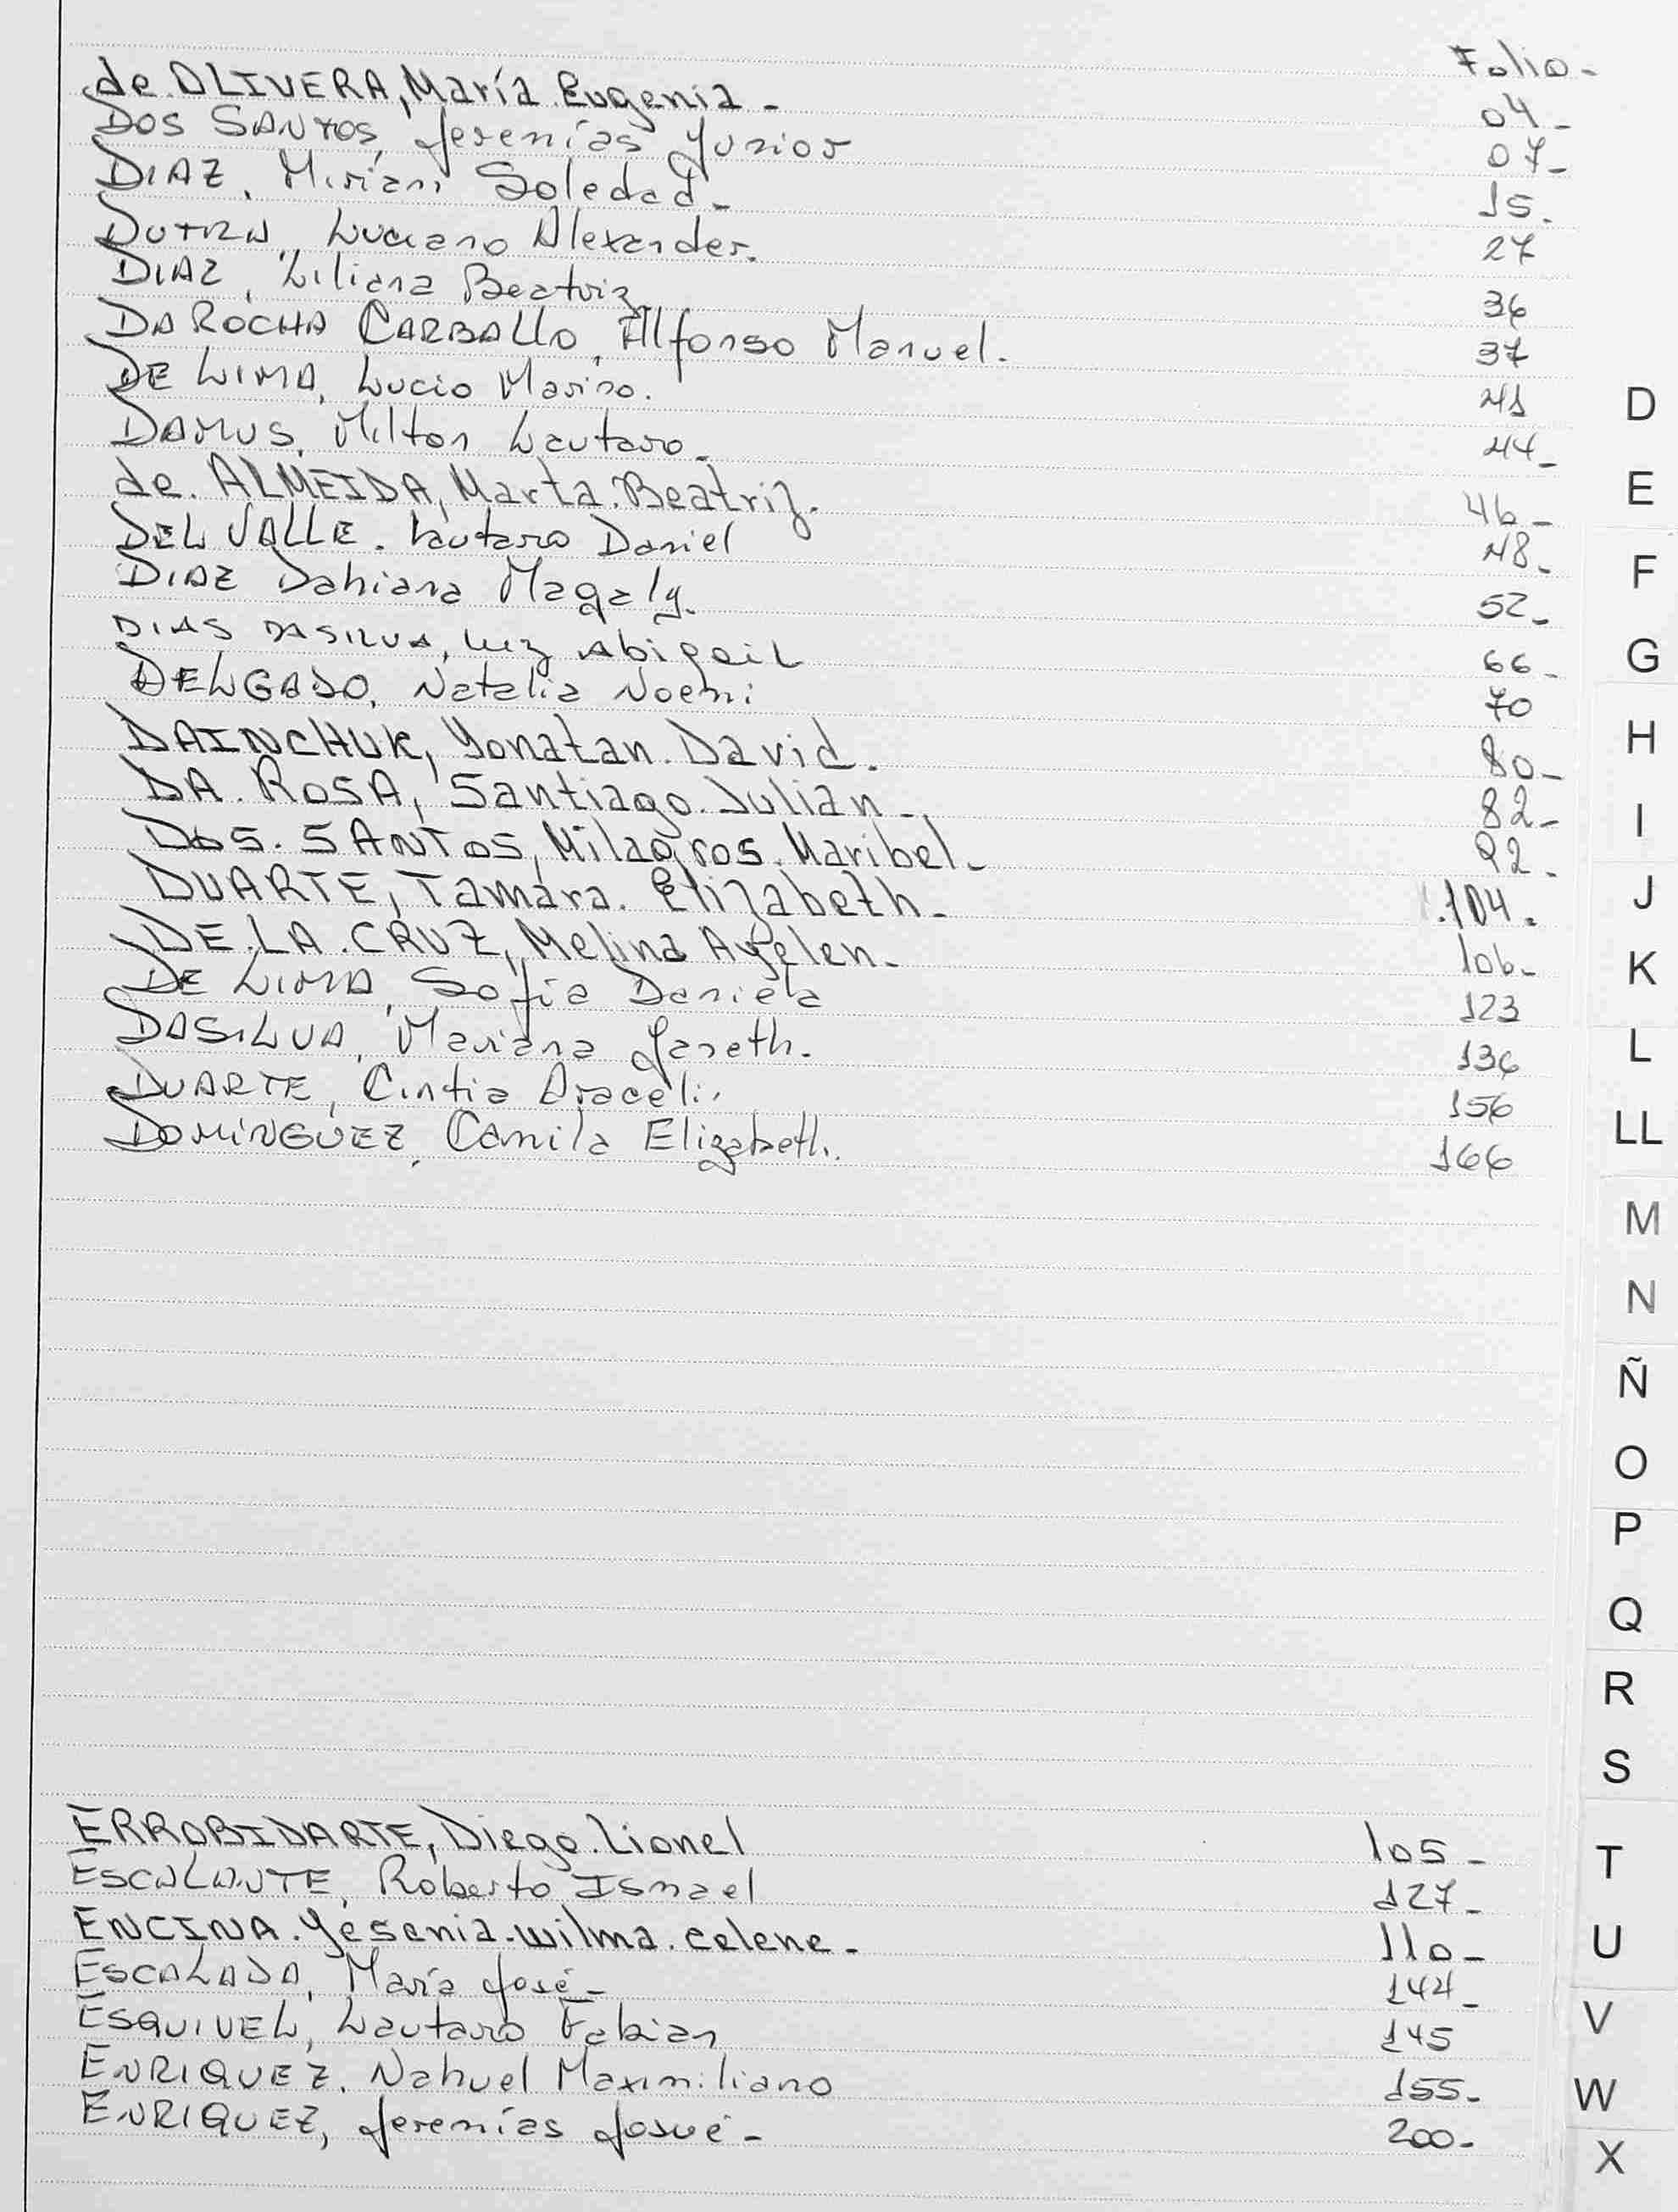 Folio-
de. OLIVERA, María Eugenia - 04-
DOS SANTOS, Jeremías Junior 07-
DIAZ, Miriam Soledad- 15.
DUTRA, Luciano Alexander. 27
DIAZ, Liliana Beatriz 36
DA ROCHA CARBALLO, Alfonso Manuel. 37
DE LIMA, Lucio Marino. 41
DAMUS, Milton Lautaro- 44-
de. ALMEIDA, Marta. Beatriz. 46-
DEL VALLE. Lautaro Daniel 48-
DIAZ Dahiana Magaly. 52-
DIAS DA SILVA, Luz Abigail 66-
DELGADO, Natalia Noemi 70
DAINCHUK, Yonatan. David. 80-
DA. ROSA, Santiago. Julián- 82-
DOS. SANTOS, Milagros. Maribel- 92-
DUARTE, Tamara. Elizabeth- 104.
DE. LA. CRUZ, Melina Ayelen- 106-
DE LIMA, Sofia Daniela 123
DASILVA, Mariana Janeth. 136
DUARTE, Cintia Araceli. 156
DOMÍNGUEZ, Camila Elizabeth. 166
ERROBIDARTE, Diego. Lionel 105-
ESCALANTE, Roberto Ismael 127-
ENCINA. Yésenia. wilma. celene- 110-
ESCALADA, María José- 144-
ESQUIVEL, Lautaro Fabian 145
ENRIQUEZ. Nahuel Maximiliano 155-
ENRIQUEZ, Jeremías Josué- 200-
D
E
F
G
H
I
J
K
L
LL
M
N
Ñ
O
P
Q
R
S
T
U
V
W
X